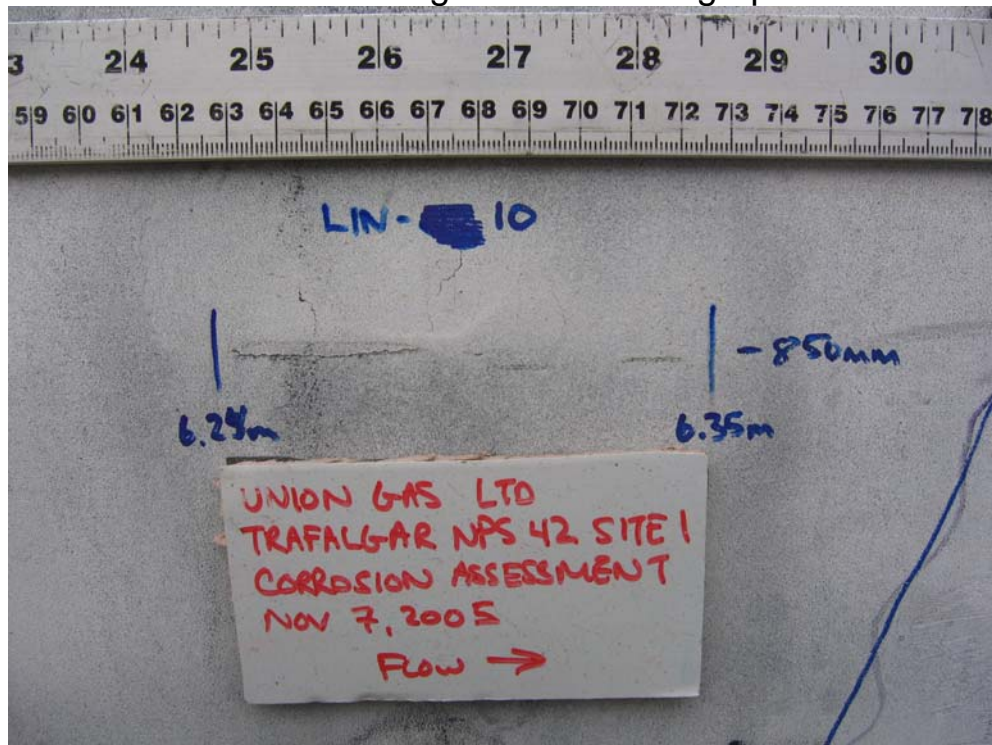 3 24 25 26 27 28 29 30
59 60 61 62 63 64 65 66 67 68 69 70 71 72 73 74 75 76 77 78
LIN- 10
- 850mm
6.35m
UNION GAS LTD
TRAFALGAR NPS 42 SITE 1
CORROSION ASSESSMENT
NOV 7, 2005
FLOW →